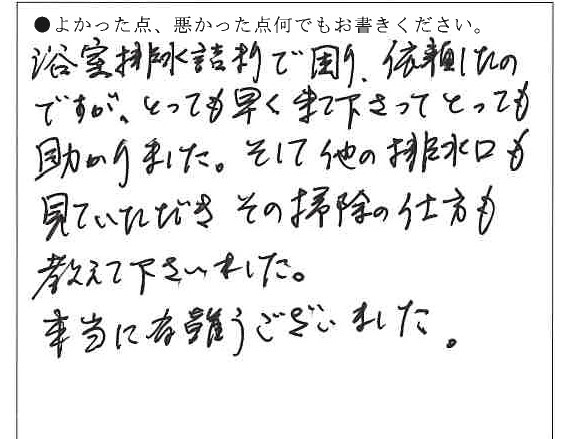 ●よかった点、悪かった点何でもお書きください。
浴室排水詰りで困り、依頼したの
ですが、とっても早く来て下さってとっても
助かりました。そして他の排水口も
見ていただき その掃除の仕方も
教えて下さいました。
本当に有難うございました。